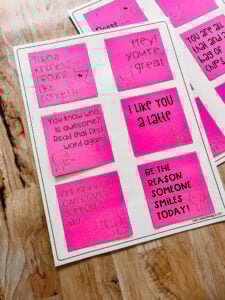 THROW
KINDNESS
AROUND
LIKE
CONFETTI
Hey!
you're
great
You know who
is awesome?
Read that first
word again!
I LIKE YOU
A LATTE
ONE KIND WORD
CAN CHANGE
SOMEONE'S
DAY
BE THE
REASON
SOMEONE
SMILES
TODAY!
Pssst...
YOU ARE ALL
THAT AND A
BAG OF
CHIPS